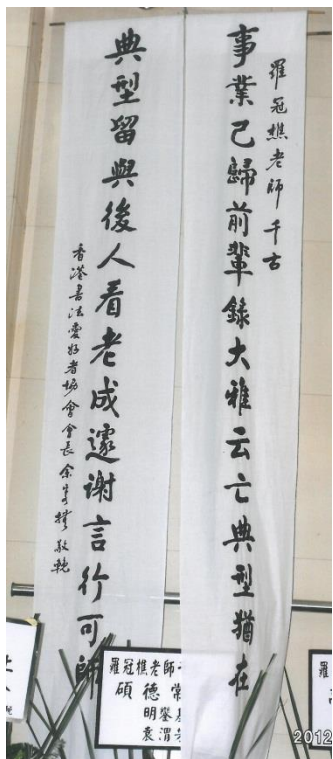 羅冠樵老師千古
事業已歸前輩錄大雅云亡典型猶在
典型留與後人看老成遽謝言行可師
香港書法愛好者協會會長 余 敬輓
羅冠樵老師
碩德
明
袁
羅
2012